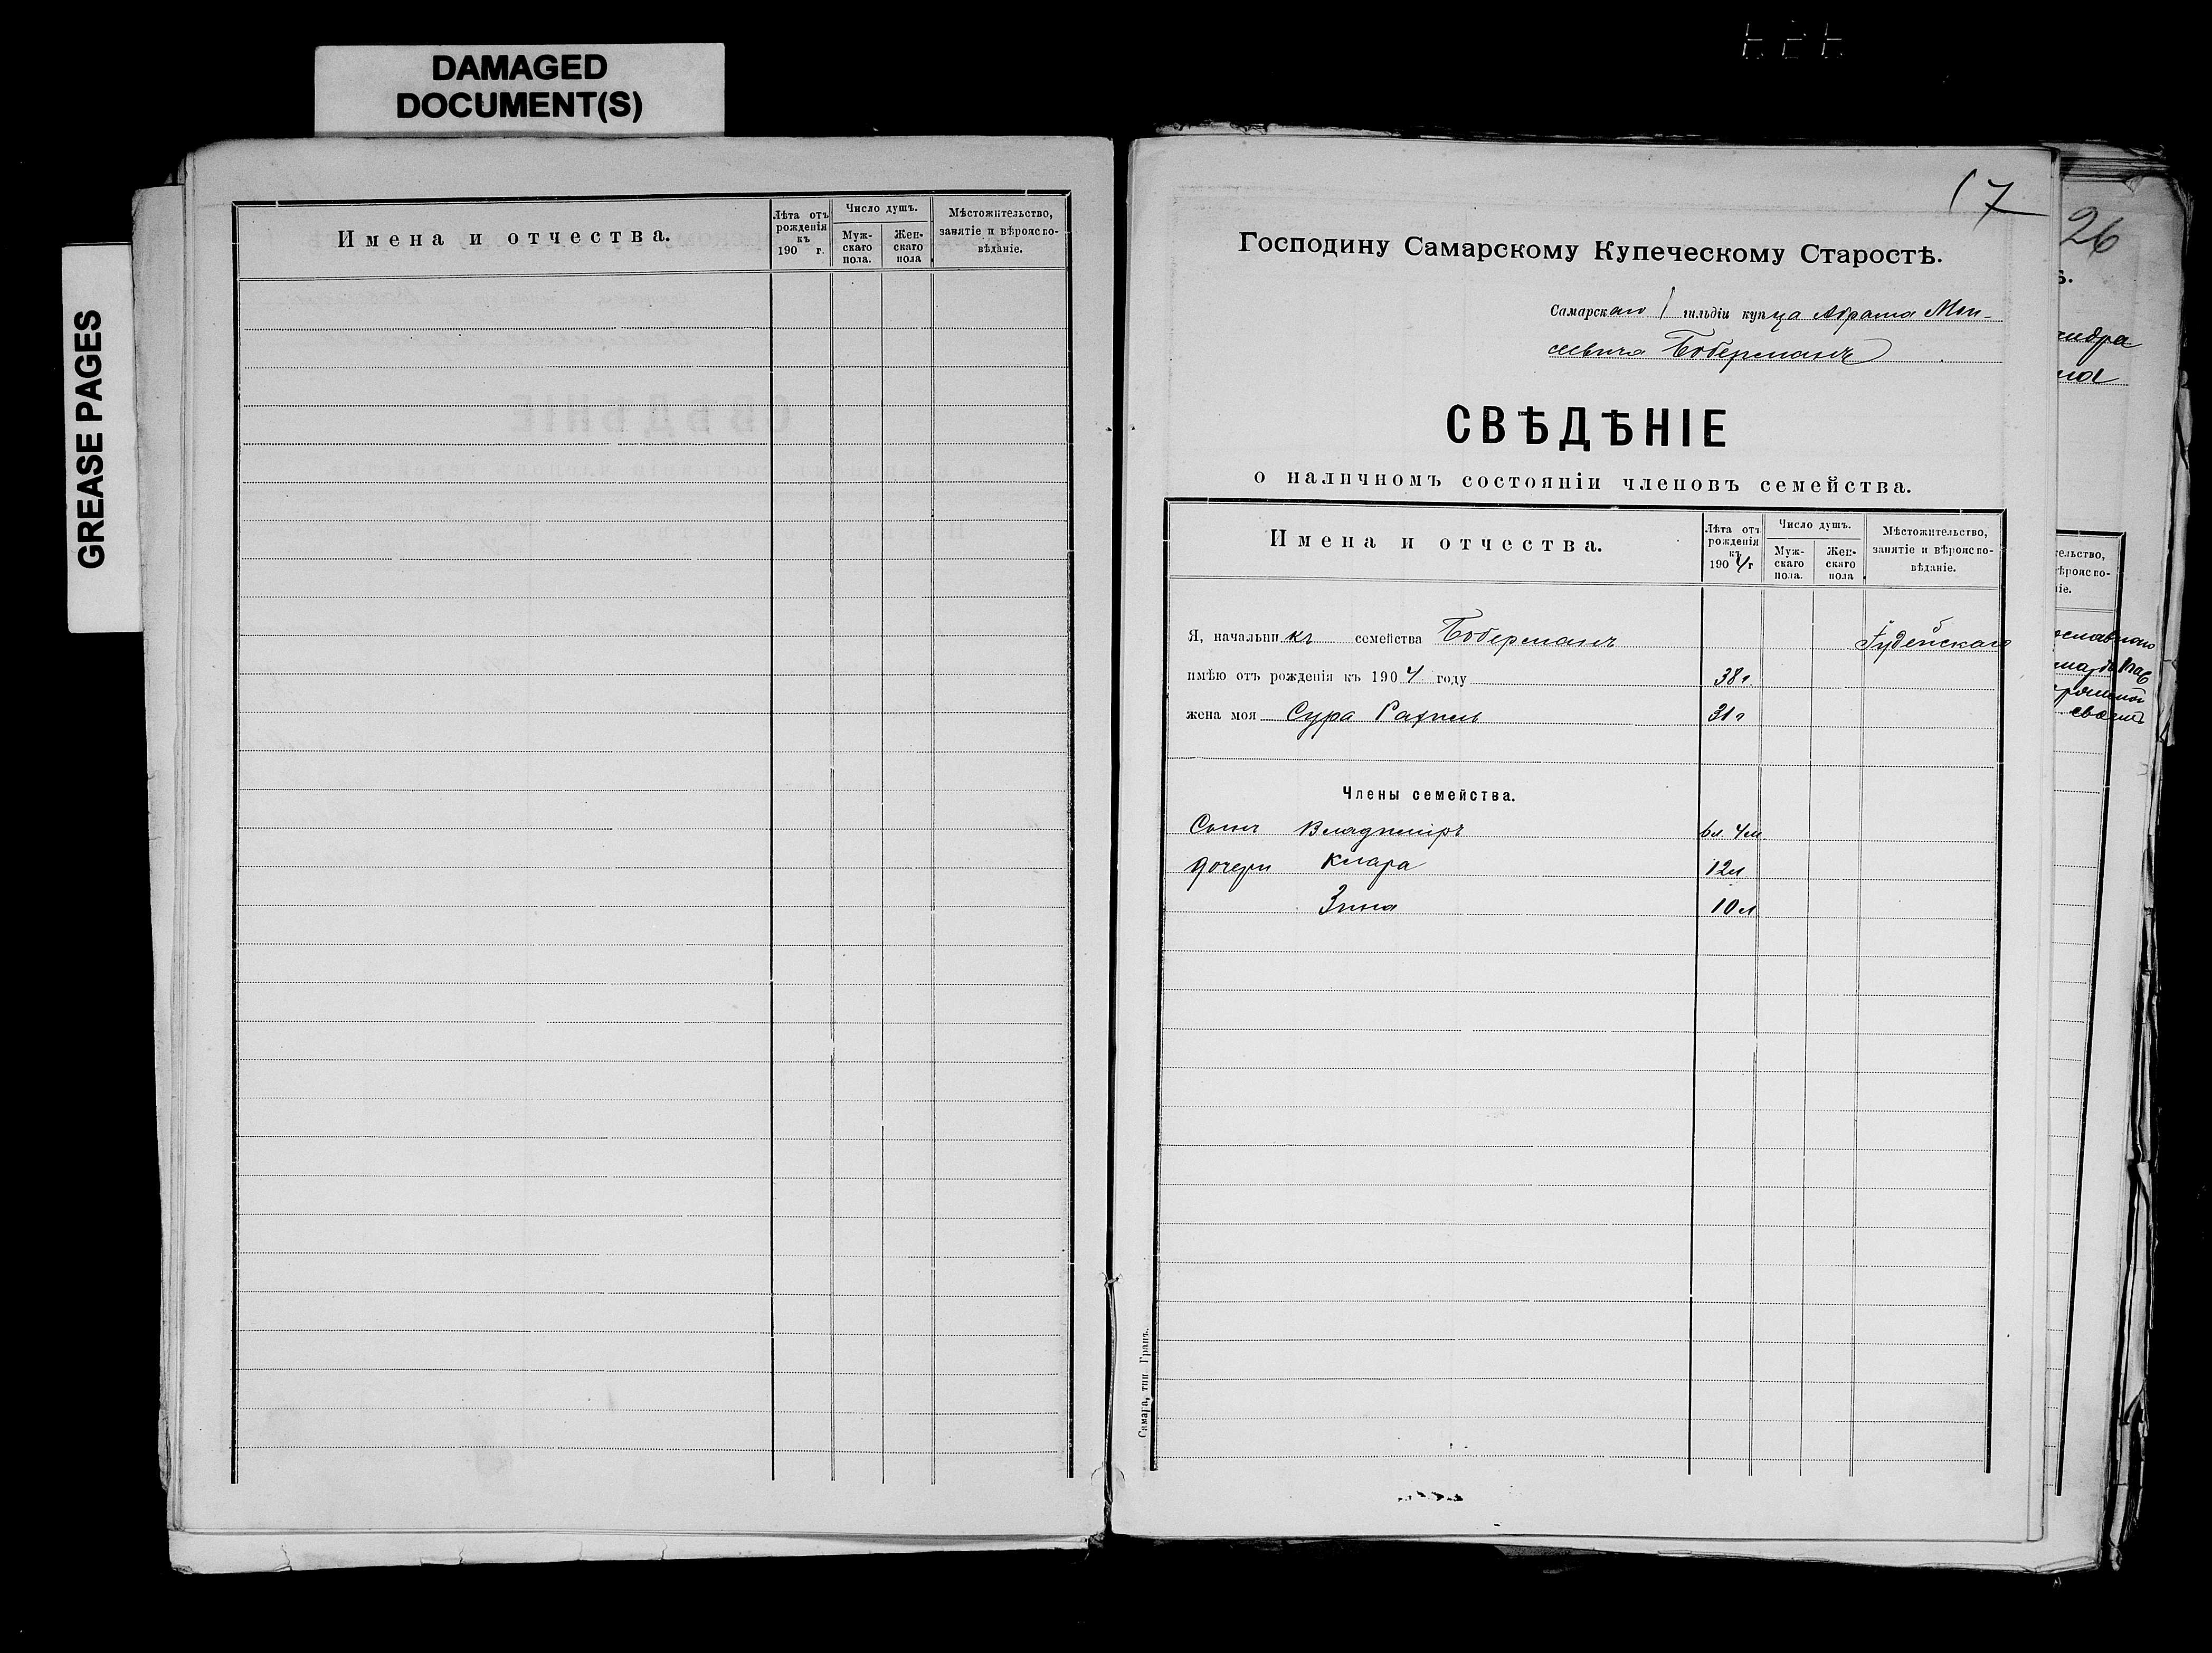 DAMAGED
DOCUMENT(S)
GREASE PAGES
Имена и отчества.
Лѣта отъ
рожденія
къ
190 г.
Число душъ.
Муж-
скаго
пола.
Жен-
скаго
пола
Мѣстожительство,
занятіе и вѣроиспо-
вѣданіе.
17
Господину Самарскому Купеческому Старостѣ.
Самарскаго 1 гильдіи купца Абрама Мои-
сеевича Боберманъ
СВѢДѢНІЕ
о наличномъ состояніи членовъ семейства.
Имена и отчества.
Лѣта отъ
рожденія
къ
1904/г
Число душъ.
Муж-
скаго
пола.
Жен-
скаго
пола
Мѣстожительство,
занятіе и вѣроиспо-
вѣданіе.
Я, начальникъ семейства Боберманъ Іудейскаго
имѣю отъ рожденія къ 1904 году 38 л
жена моя Сура Рахиль 31 г
Члены семейства.
Сынъ Владиміръ 6 л. 4 м.
дочери Клара 12 л
Зина 10 л
Самара, тип. Гранъ.
26
ѣ.
андра
на
тельство,
вѣроиспо-
ніе.